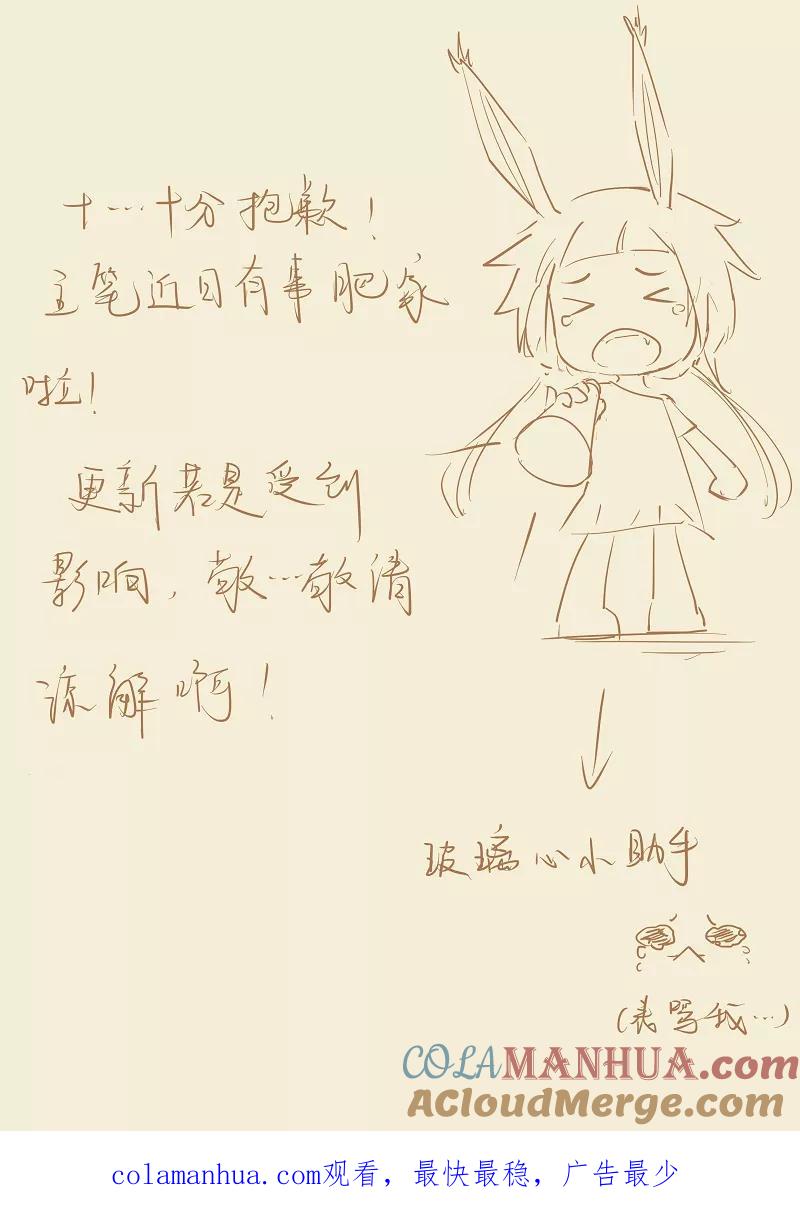 十…十分抱歉！
主笔近日有事肥家
啦！
更新若是受到
影响，敬…敬请
谅解啊！
玻璃心小助手
(表骂我…)
COLAMANHUA.com
ACloudMerge.com
colamanhua.com观看，最快最稳，广告最少